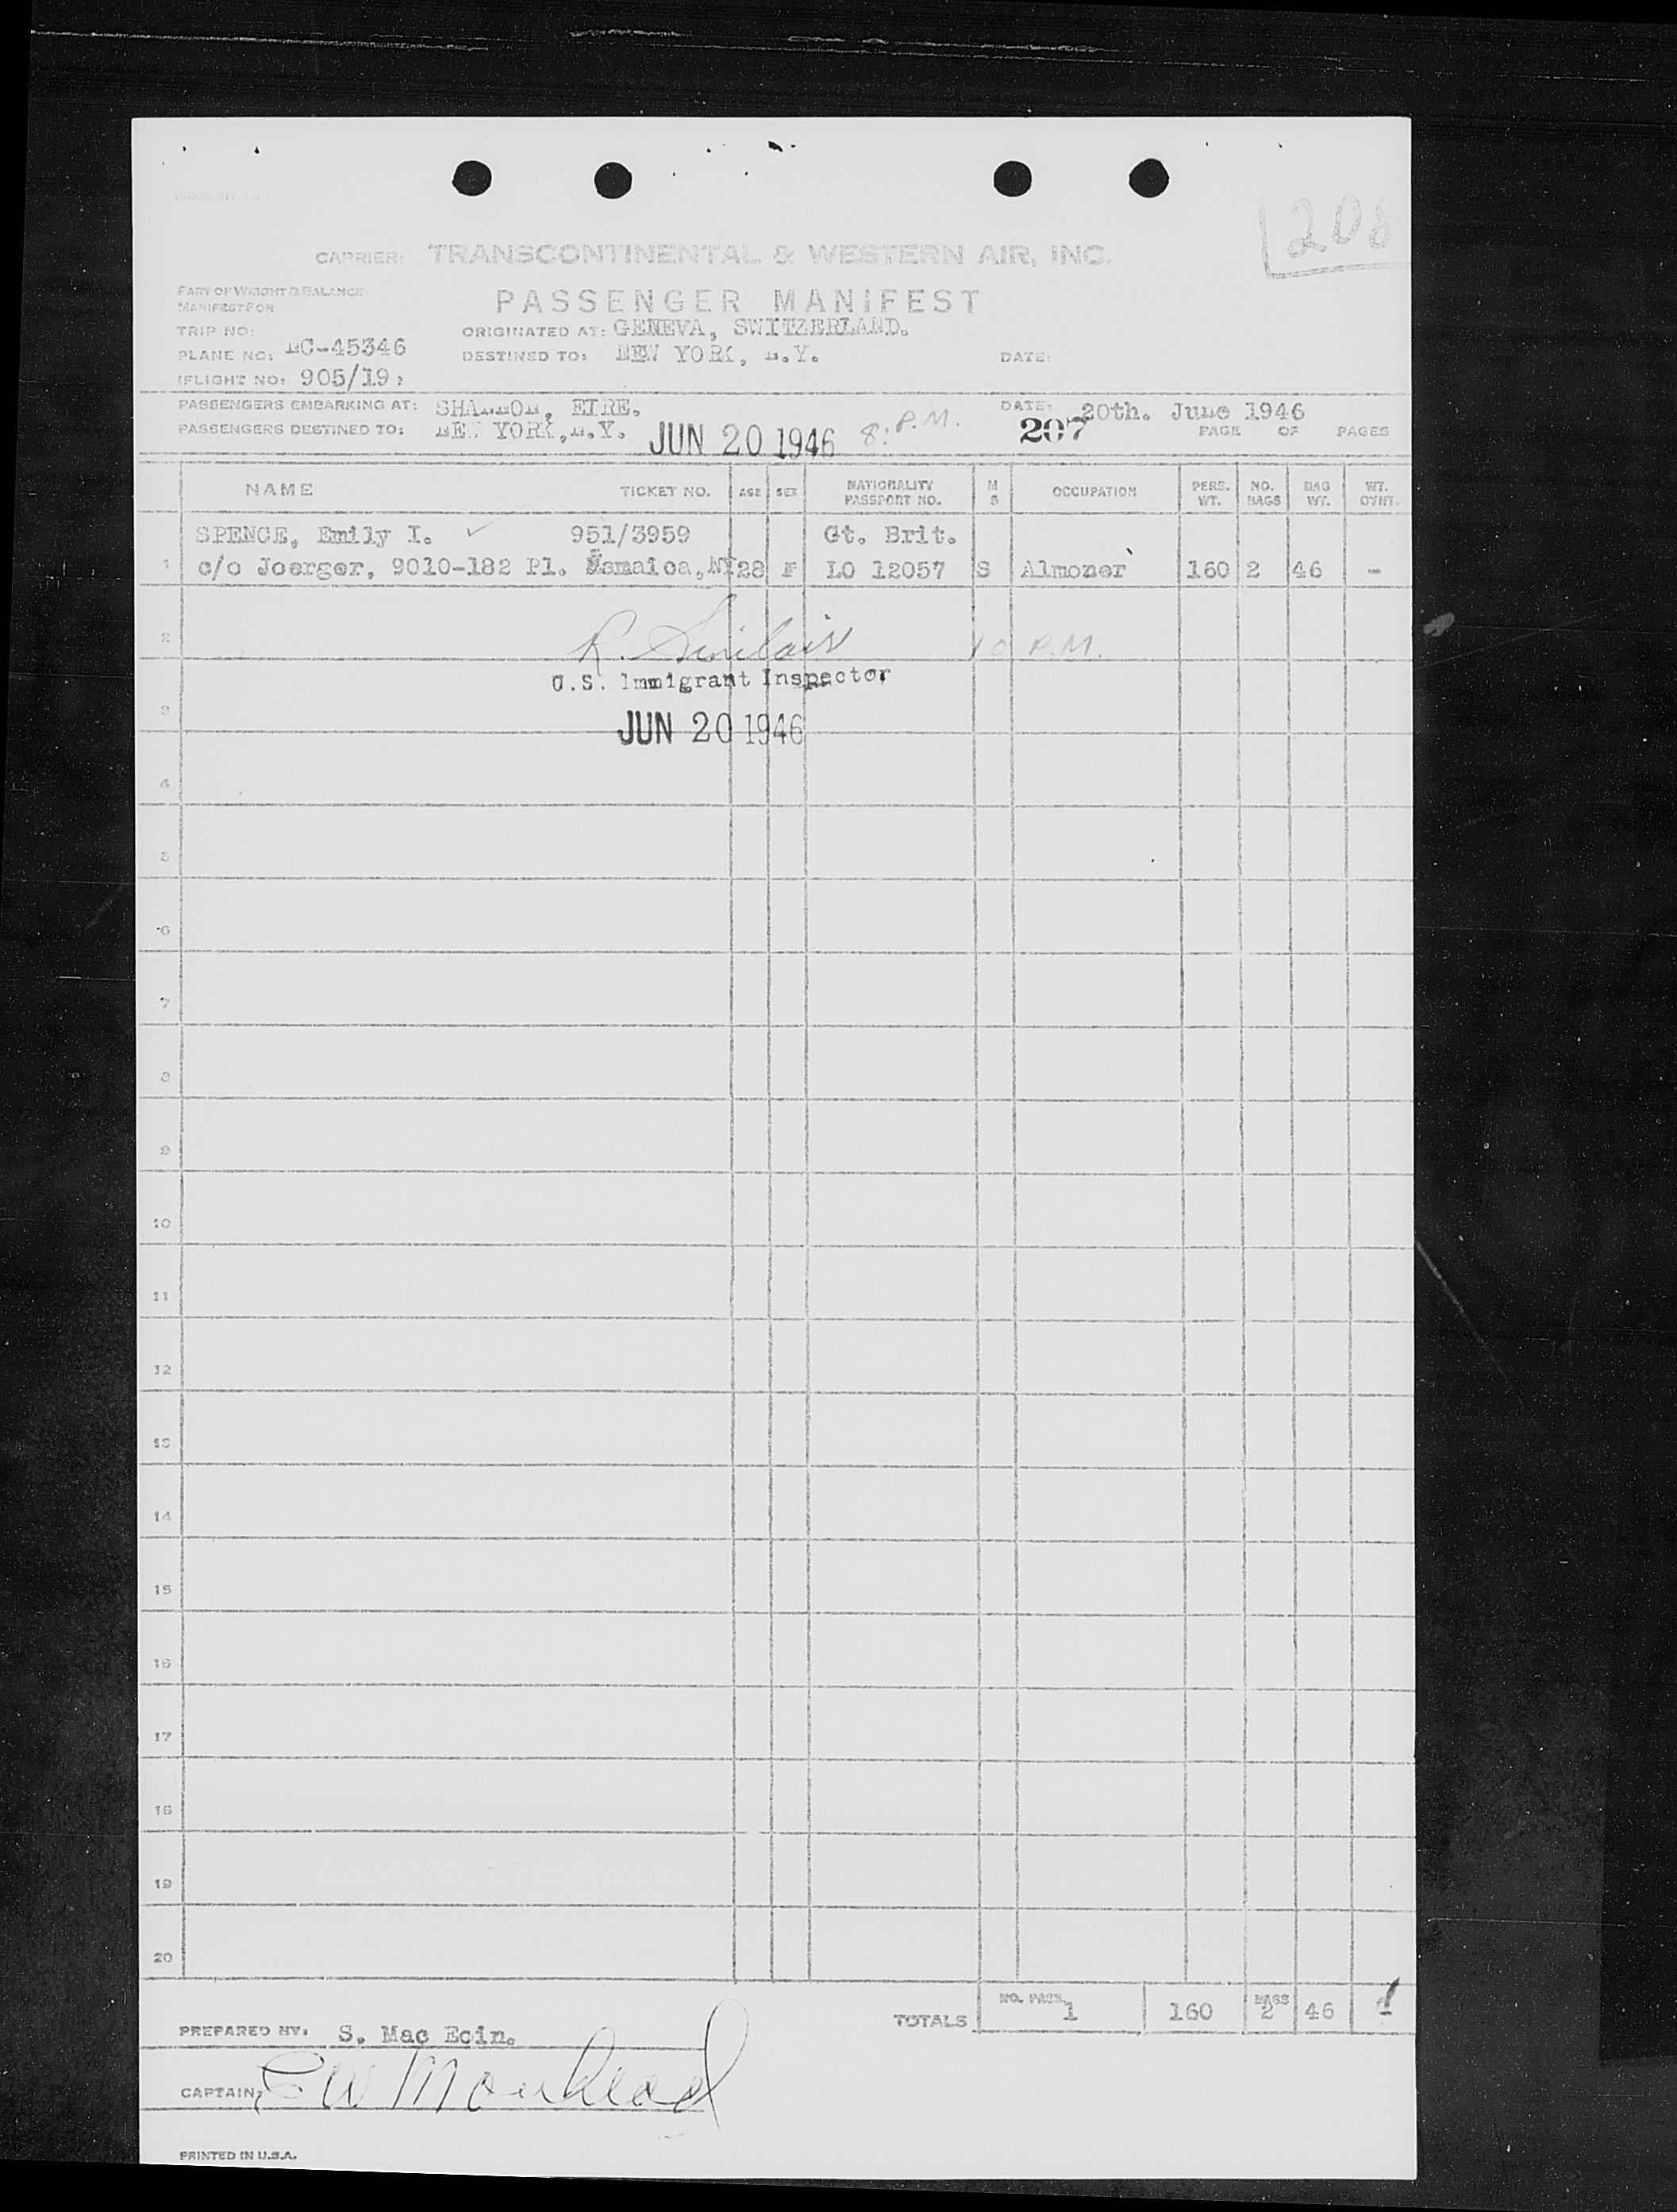 208
CARRIER: TRANSCONTINENTAL & WESTERN AIR, INC.
PART OF WEIGHT & BALANCE
MANIFEST FOR
PASSENGER MANIFEST
TRIP NO:
ORIGINATED AT: GENEVA, SWITZERLAND.
PLANE NO: NC-45346
DESTINED TO: NEW YORK, N.Y.
DATE:
(FLIGHT NO: 905/19)
PASSENGERS EMBARKING AT: SHANNON, EIRE.
DATE: 20th. June 1946
PASSENGERS DESTINED TO: NEW YORK, N.Y. JUN 20 1946 8: P.M.
207
PAGE OF PAGES
NAME TICKET NO. AGE SEX NATIONALITY PASSPORT NO. M S OCCUPATION PERS. WT. NO. BAGS BAG WT. WT. OVHT.
SPENCE, Emily I. 951/3959 Gt. Brit.
1 c/o Joerger, 9010-182 Pl. Jamaica, NY 28 F LO 12057 S Almoner 160 2 46 -
2 R. Sinclair 10 P.M.
U.S. Immigrant Inspector
3
JUN 20 1946
4
5
6
7
8
9
10
11
12
13
14
15
16
17
18
19
20
TOTALS NO. PASS. 1 160 BAGS 2 46 -
PREPARED BY: S. Mac Eoin.
CAPTAIN:
PRINTED IN U.S.A.